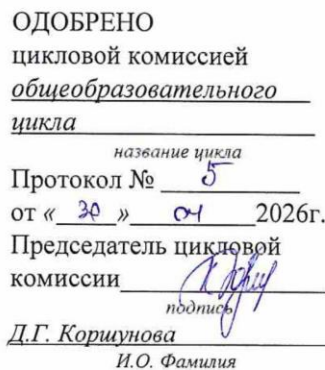 ОДОБРЕНО
цикловой комиссией
общеобразовательного
цикла
название цикла
Протокол № 5
от « 30 » 01 2026г.
Председатель цикловой
комиссии
подпись
Д.Г. Коршунова
И.О. Фамилия